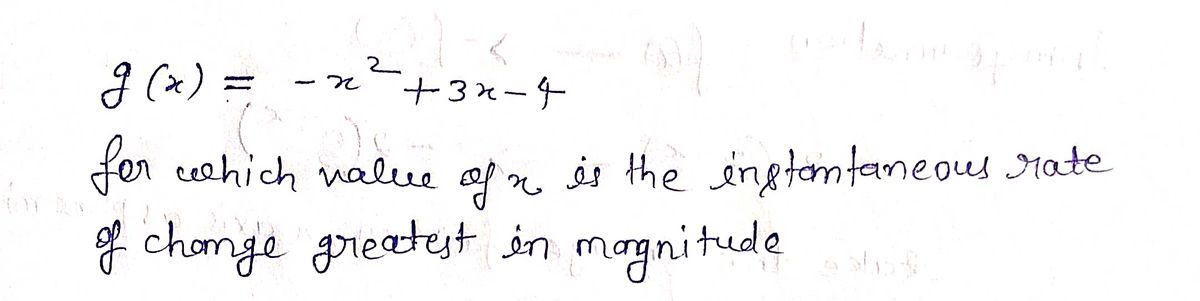 g(x) = -x²+3x-4
for which value of x is the instantaneous rate
of change greatest in magnitude